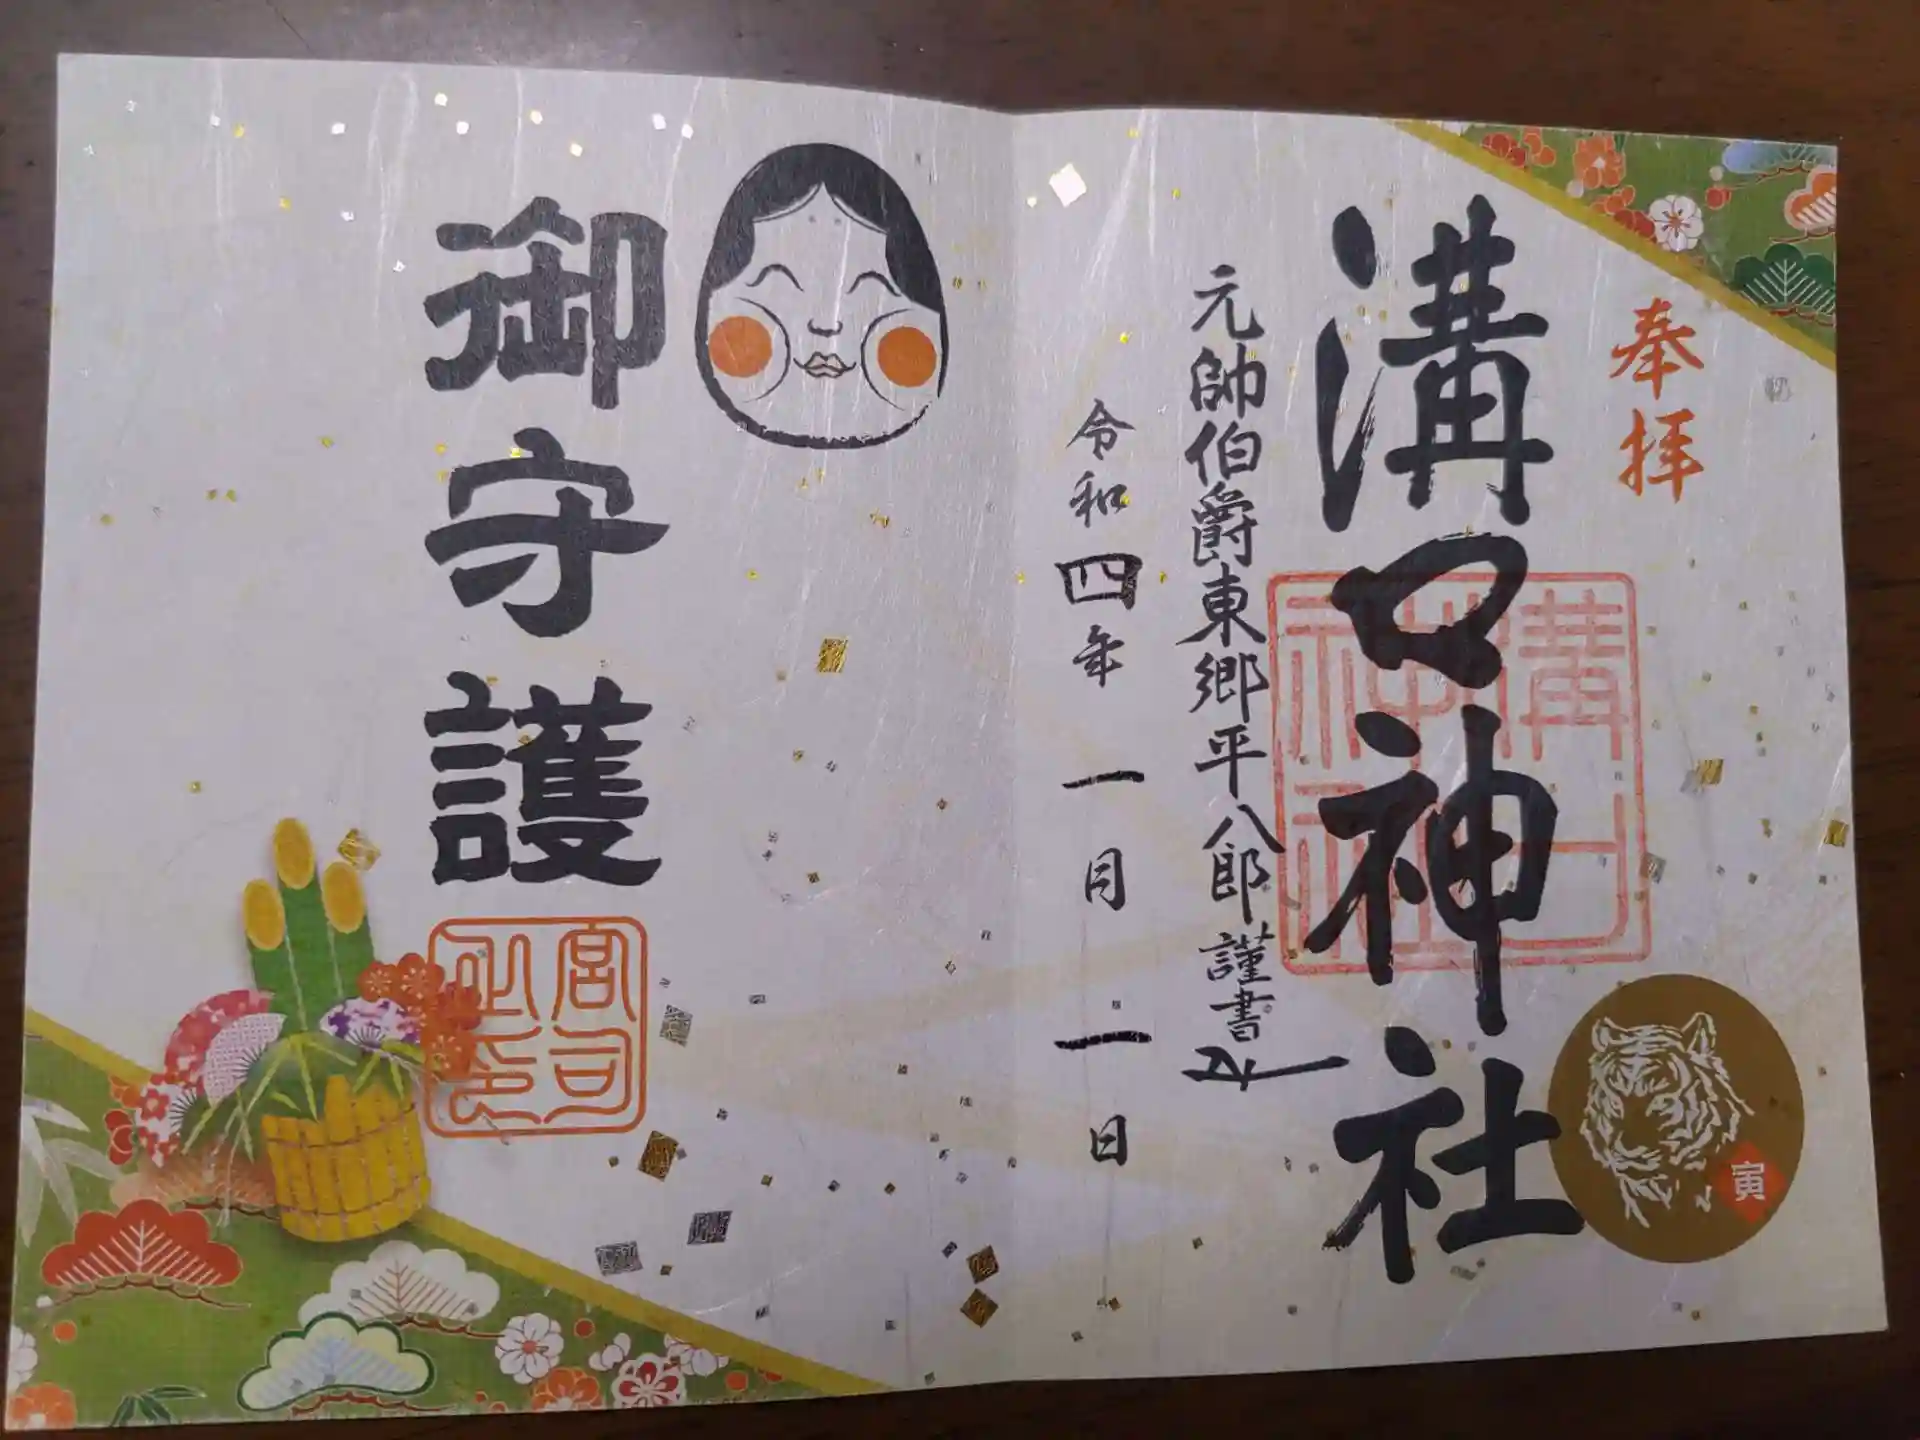 奉拝
溝口神社
溝口神社
寅
元帥伯爵東郷平八郎謹書
令和四年一月一日
御守護
宮司之印